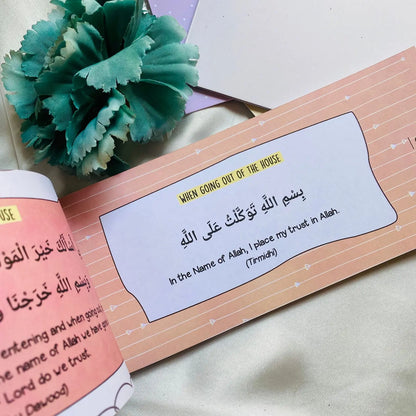 USE
خَيْرَ
بِسْمِ اللَّهِ خَرَجْنَا
entering and when going
the name of Allah we have
Lord do we trust.
Dawood)
WHEN GOING OUT OF THE HOUSE
بِسْمِ اللَّهِ تَوَكَّلْتُ عَلَى اللَّهِ
In the Name of Allah, I place my trust in Allah.
(Tirmidhi)